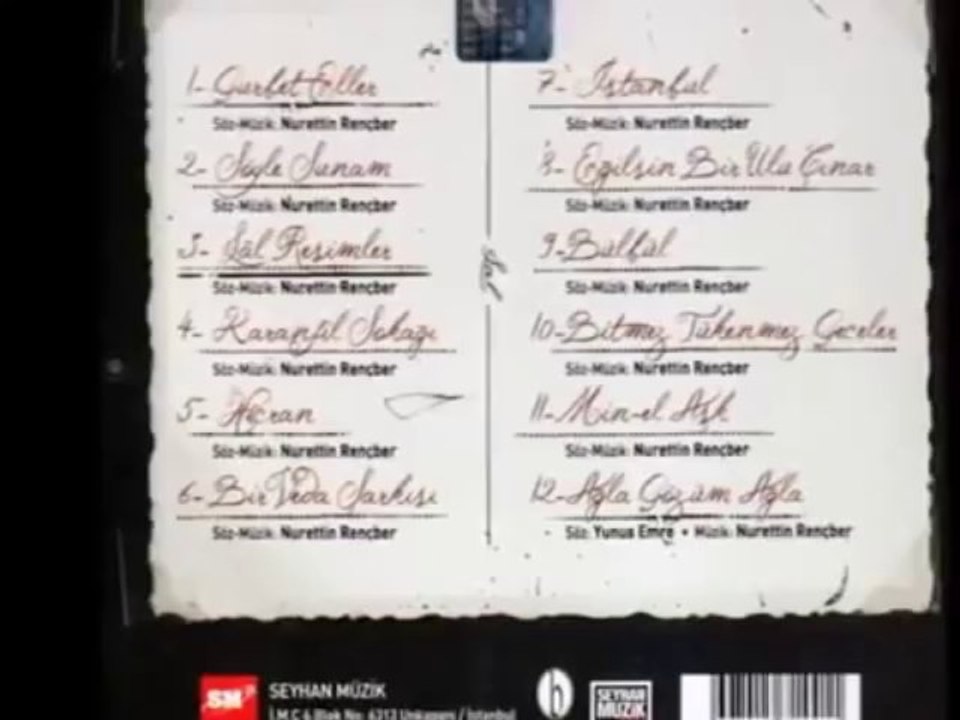 1- Gurbet Eller
Söz-Müzik: Nurettin Rençber
2- Söyle Sunam
Söz-Müzik: Nurettin Rençber
3- Şâl Resimler
Söz-Müzik: Nurettin Rençber
4- Karanfil Sokağı
Söz-Müzik: Nurettin Rençber
5- Hicran
Söz-Müzik: Nurettin Rençber
6- Bir Veda Şarkısı
Söz-Müzik: Nurettin Rençber
7- İstanbul
Söz-Müzik: Nurettin Rençber
8- Eğilsin Bir Ulu Çınar
Söz-Müzik: Nurettin Rençber
9- Bülbül
Söz-Müzik: Nurettin Rençber
10- Bitmez Tükenmez Geceler
Söz-Müzik: Nurettin Rençber
11- Min-el Aşk
Söz-Müzik: Nurettin Rençber
12- Ağla Gözüm Ağla
Söz: Yunus Emre • Müzik: Nurettin Rençber
SM
SEYHAN MÜZİK
İ.M.Ç 6 Blok No: 6212 Unkapanı / İstanbul
SEYHAN
MÜZİK